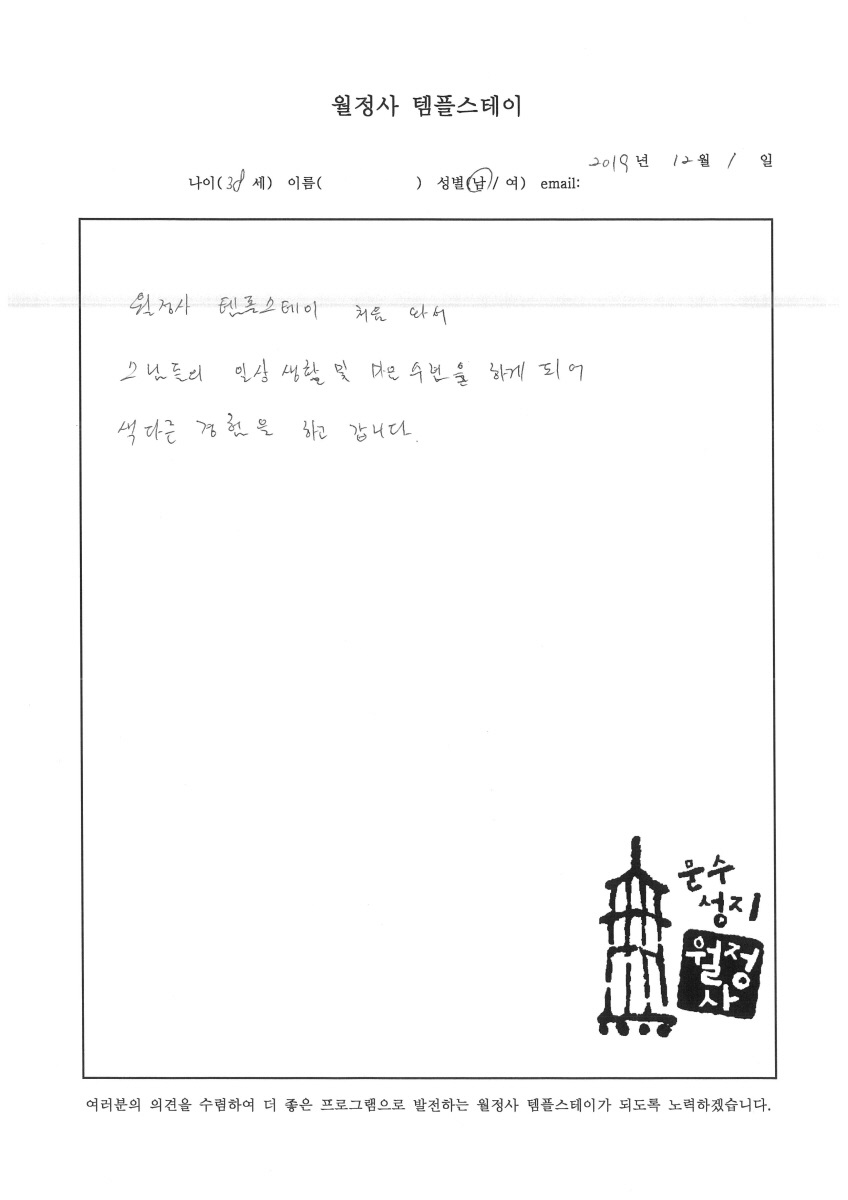 월정사 템플스테이
2019년 12월 1일
나이(38세) 이름( ) 성별(남/여) email:
월정사 템플스테이 처음 와서
스님들의 일상 생활 및 수련을 하게 되어
색다른 경험을 하고 갑니다.
문수
성지
월정
사
여러분의 의견을 수렴하여 더 좋은 프로그램으로 발전하는 월정사 템플스테이가 되도록 노력하겠습니다.